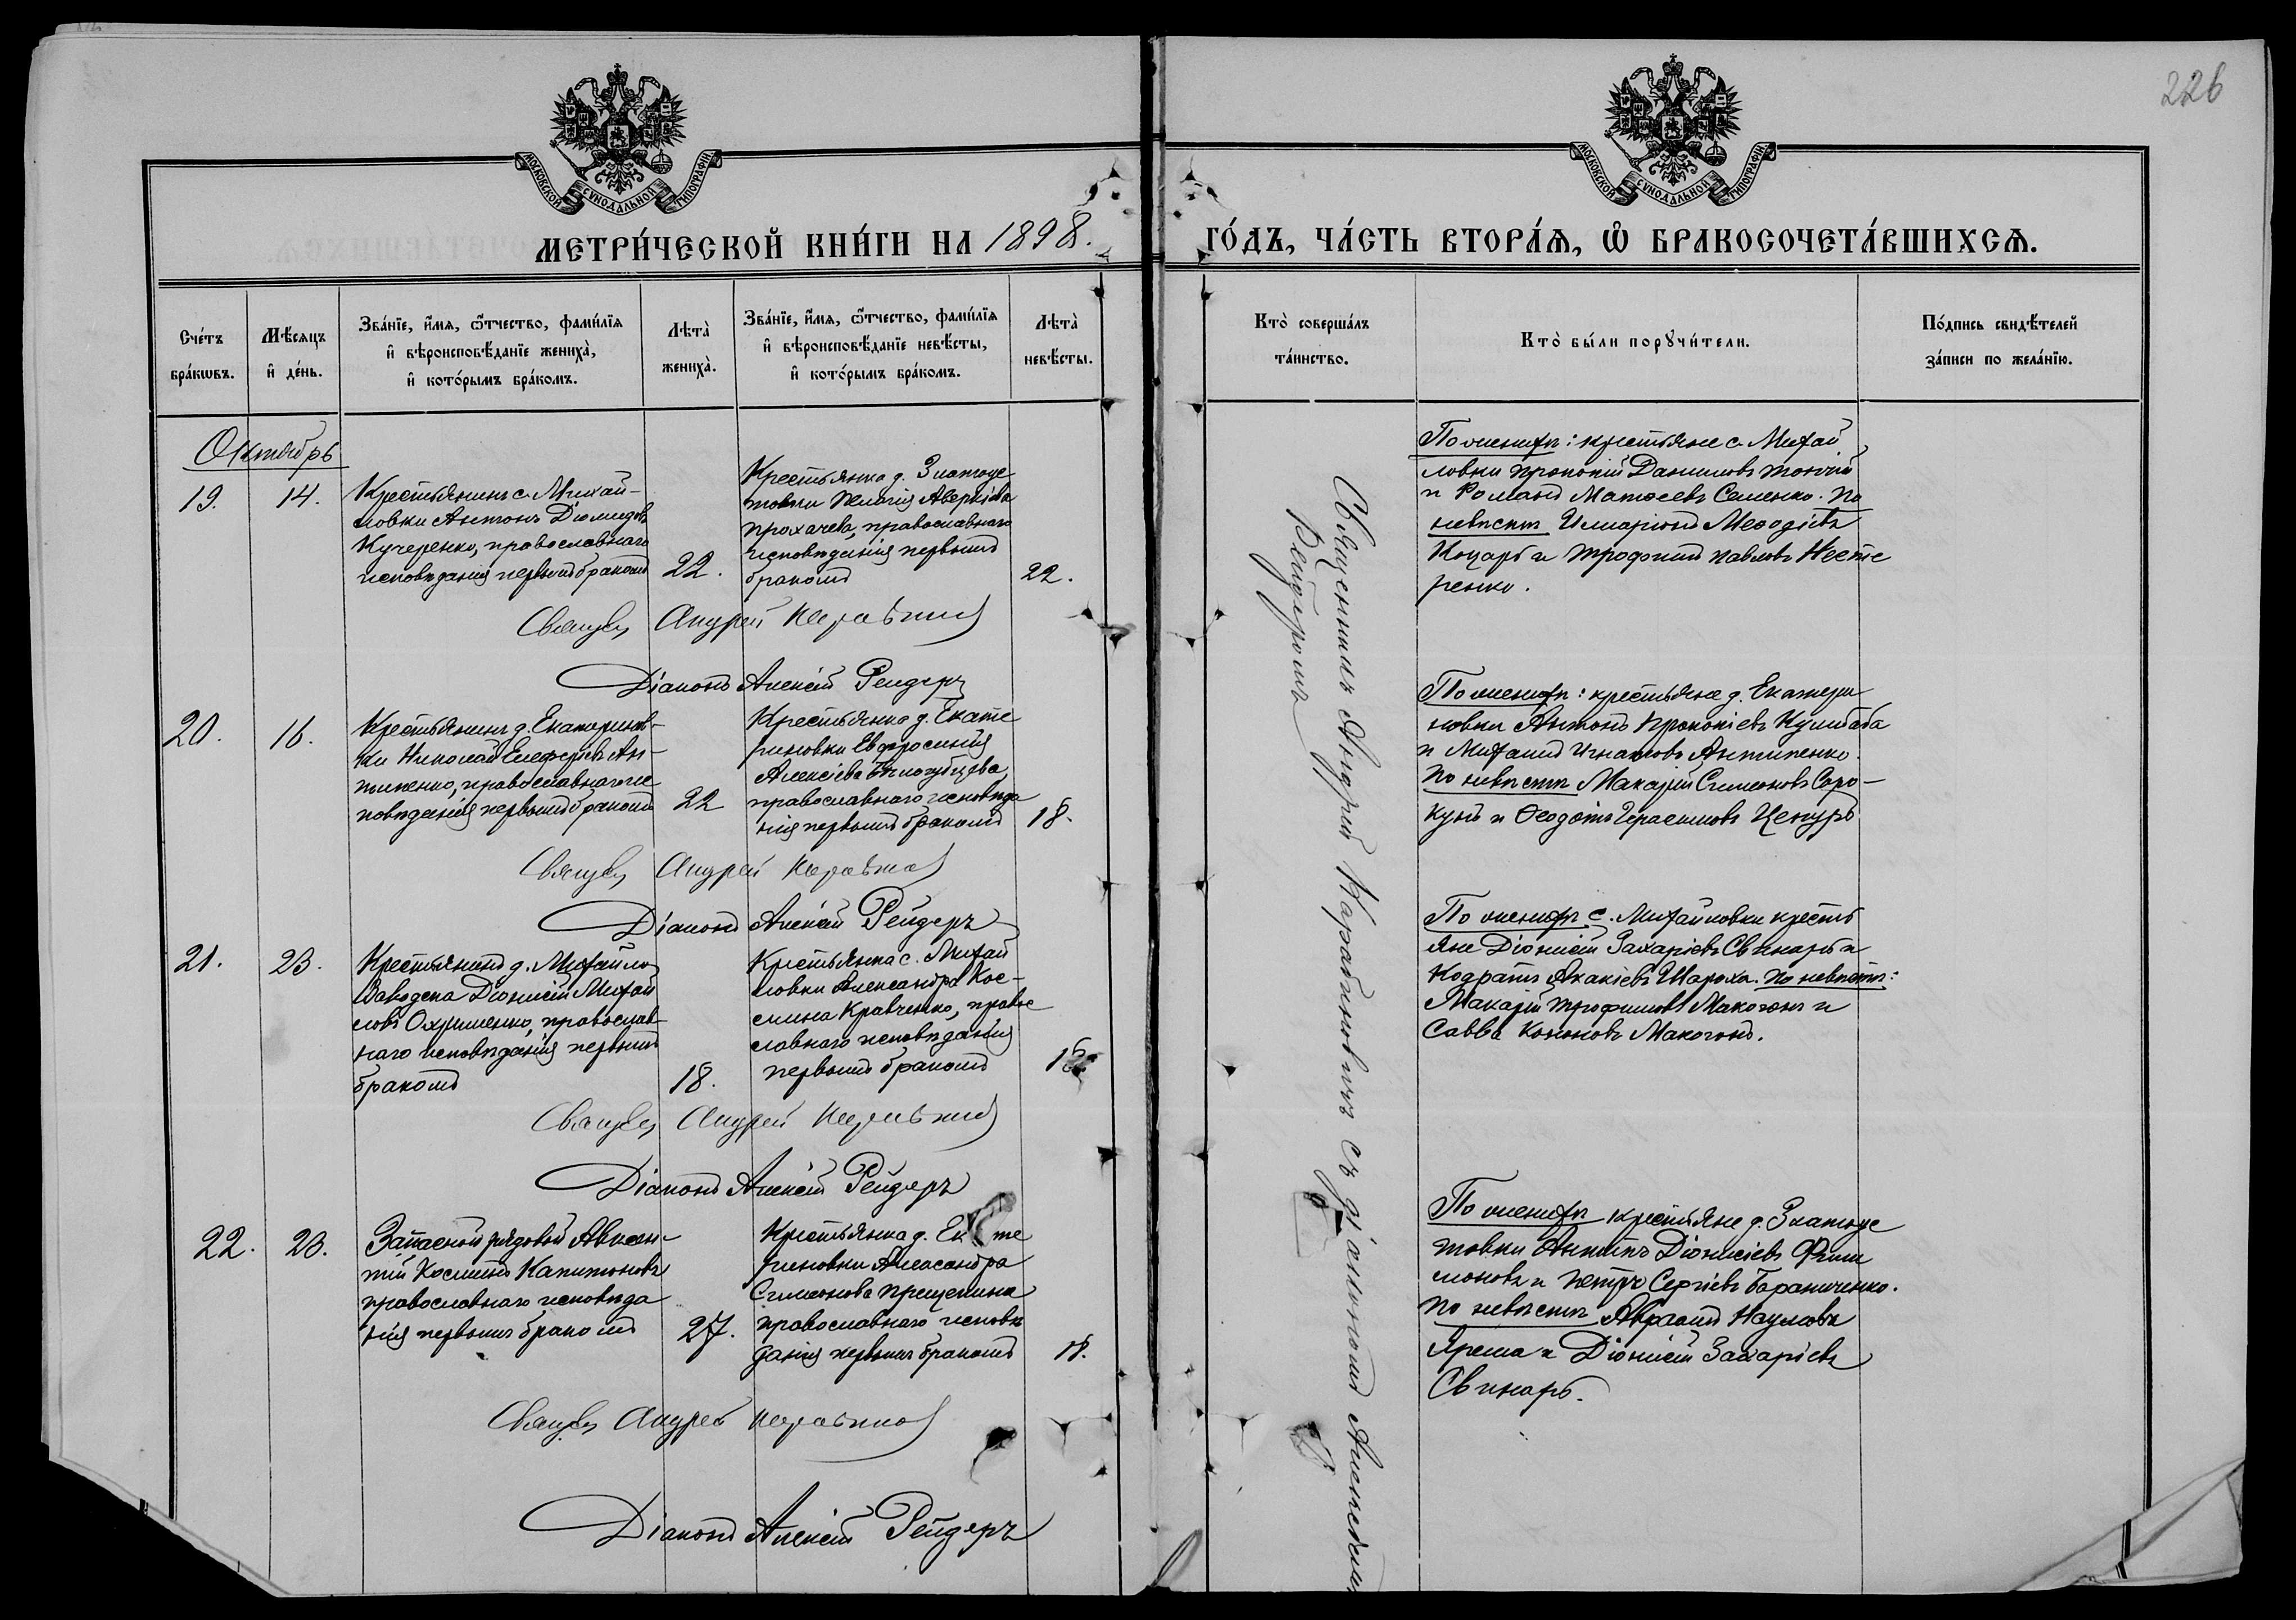 226
МОСКОВСКОЙ СѴНОДАЛЬНОЙ ТИПОГРАФІИ
МОСКОВСКОЙ СѴНОДАЛЬНОЙ ТИПОГРАФІИ
МЕТРИ́ЧЕСКОЙ КНИ́ГИ НА 1898.
ГО́ДЪ, ЧА́СТЬ ВТОРА́Ѧ, Ѡ҆ БРАКОСОЧЕТА́ВШИХСѦ.
Сче́тъ бра́кѡвъ.
Мѣ́сяцъ и҆ де́нь.
Зва́нїе, и҆́мѧ, ѻ҆́тчество, фами́лїѧ
и҆ вѣроисповѣ́данїе жениха̀,
и҆ кото́рымъ бра́комъ.
Лѣта̀ жениха̀.
Зва́нїе, и҆́мѧ, ѻ҆́тчество, фами́лїѧ
и҆ вѣроисповѣ́данїе невѣ́сты,
и҆ кото́рымъ бра́комъ.
Лѣта̀ невѣ́сты.
Кто̀ соверша́лъ
та́инство.
Кто̀ бы́ли порꙋчи́тели.
По́дпись свидѣ́телей
за́писи по жела́нїю.
Октябрь
19.
14.
Крестьянинъ с. Михай-
ловки Антонъ Діомидовъ
Кучеренко, православнаго
исповѣданія первымъ бракомъ
22.
Крестьянка д. Златоус
товки Пелагія Аверкіева
Прохачева, православнаго
исповѣданія первымъ
бракомъ
22.
По женихѣ: крестьяне с. Михай
ловки Прокопій Даниловъ
и Романъ Матѳеевъ Семенко. По
невѣстѣ Иларіонъ Меѳодіевъ
Коцарь и Трофимъ Павловъ Несте
ренко.
Священ. Андрей
Діаконъ Алексѣй Рейдеръ
20.
16.
Крестьянинъ д. Екатеринов-
ки Николай Елефѳріевъ Ан-
типенко, православнаго ис
повѣданія первымъ бракомъ
22
Крестьянка д. Екате
риновки Евфросинія
Алексіева Бѣлогубцева,
православнаго исповѣда
нія первымъ бракомъ
18.
По женихѣ: крестьяне д. Екатери
новки Антонъ Прокопіевъ Кулибаба
и Михаилъ Игнатовъ Антипенко.
По невѣстѣ Макарій Симеоновъ Соро-
кунъ и Ѳеодотъ Герасимовъ Ценуръ
Священ. Андрей
Діаконъ Алексѣй Рейдеръ
21.
23.
Крестьянинъ д. Михайло
Заводска Діонисій Михай
ловъ Охрименко, православ-
наго исповѣданія первымъ
бракомъ
18.
Крестьянка с. Михай
ловки Александра Кос-
мина Кравченко, право
славнаго исповѣданія
первымъ бракомъ
По женихѣ с. Михайловки кресть
яне Діонисій Захаріевъ Свинарь и
Кодратъ Акакіевъ Шароха. По невѣстѣ:
Макарій Трофимовъ Макогонъ и
Савва Кононовъ Макогонъ.
Священ. Андрей
Діаконъ Алексѣй Рейдеръ
22.
23.
Запасной рядовой Авксен-
тій Косминъ Капитоновъ
православнаго исповѣда
нія первымъ бракомъ
27.
Крестьянка д. Екате
риновки Александра
Симеонова Прищепина
православнаго исповѣ
данія первымъ бракомъ
18.
По женихѣ крестьяне д. Златоус
товки Антипъ Діонисіевъ Фили
моновъ и Петръ Сергіевъ Бараниченко.
По невѣстѣ Авраамъ Наумовъ
Ярема и Діонисій Захаріевъ
Свинарь.
Священ. Андрей
Діаконъ Алексѣй Рейдеръ
Священникъ Андрей Карабиновичъ съ діакономъ Алексѣемъ
Рейдеромъ